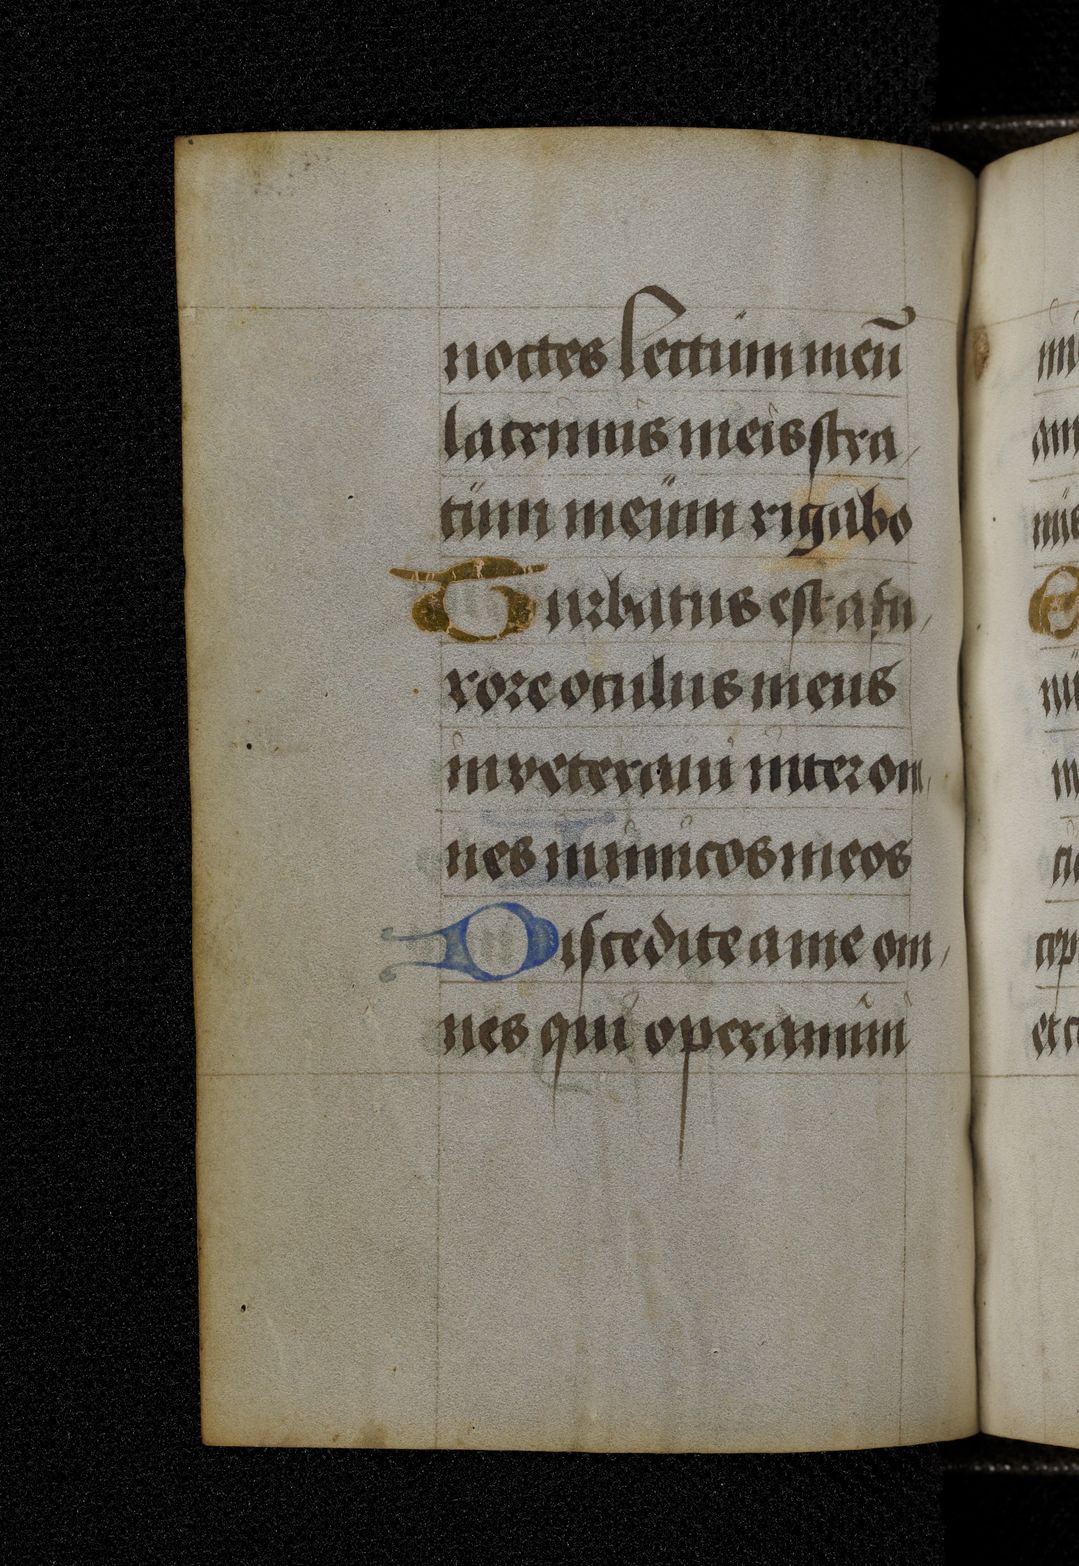 noctes lectum meū
lacrimis meis stra
tum meum rigabo
Turbatus est a fu
rore oculus meus
inveteraui inter om
nes inimicos meos
Discedite a me om
nes qui operamini